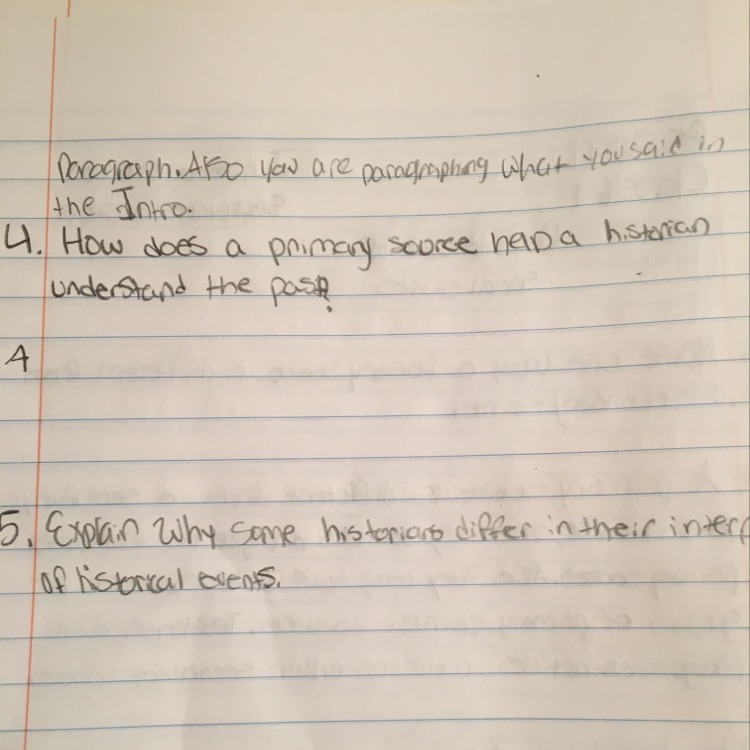 Paragraph. Also you are paragraphing what you said in
the Intro.
4. How does a primary source help a historian
understand the past?
A
5. Explain why some historians differ in their interp
of historical events.